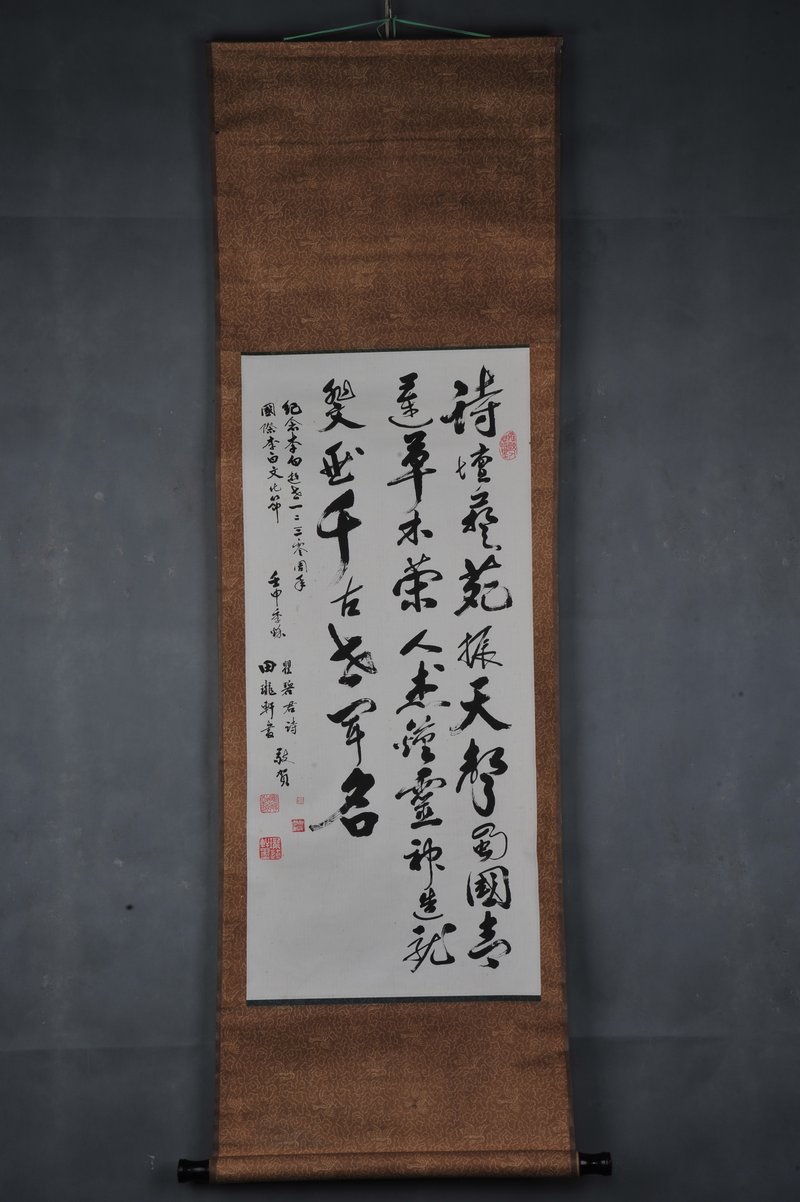 詩壇藝苑振天聲蜀國青
蓮草木榮人杰鐘靈神造就
斐丕千古世軍名
紀念李白逝世一二三零周年
國際李白文化節 壬申季秋
瞿碧君詩
田龍軒書 敬賀